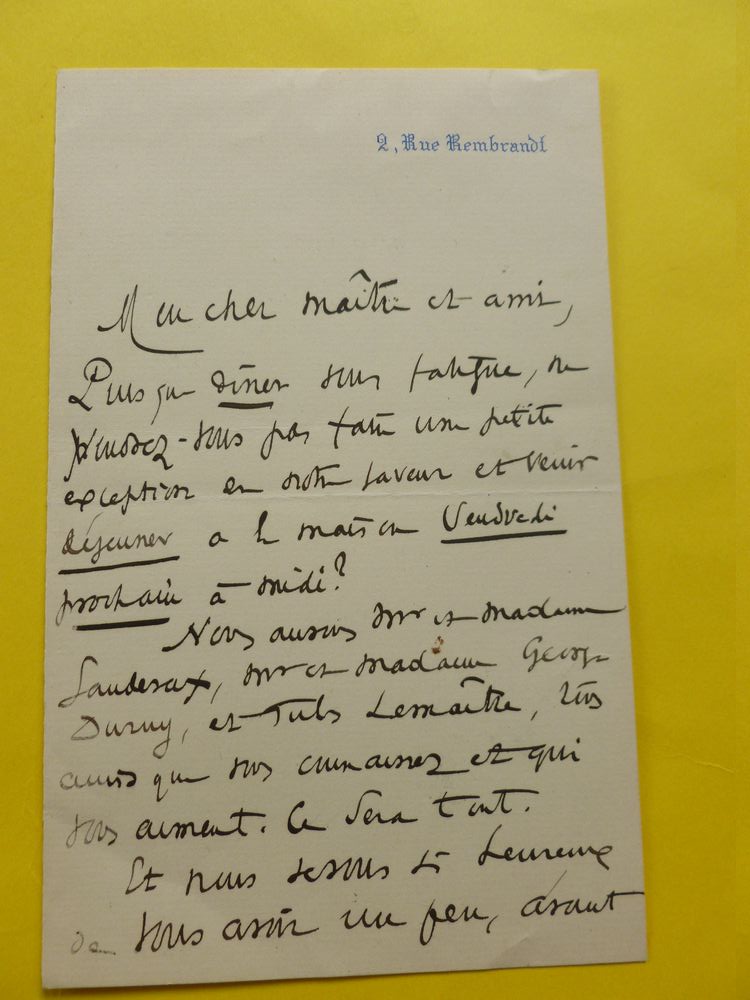 2, Rue Rembrandt
Mon cher maître et ami,
Puisque dîner vous fatigue, ne
voudrez-vous pas faire une petite
exception en notre faveur et venir
déjeuner à la maison Vendredi
prochain à midi?
Nous aurons Mr et Madame
Ganderax, Mr et Madame George
Duruy, et Jules Lemaître, tous
amis que vous connaissez et qui
vous aiment. Ce sera tout.
Et nous serons si heureux
de vous avoir un peu, avant